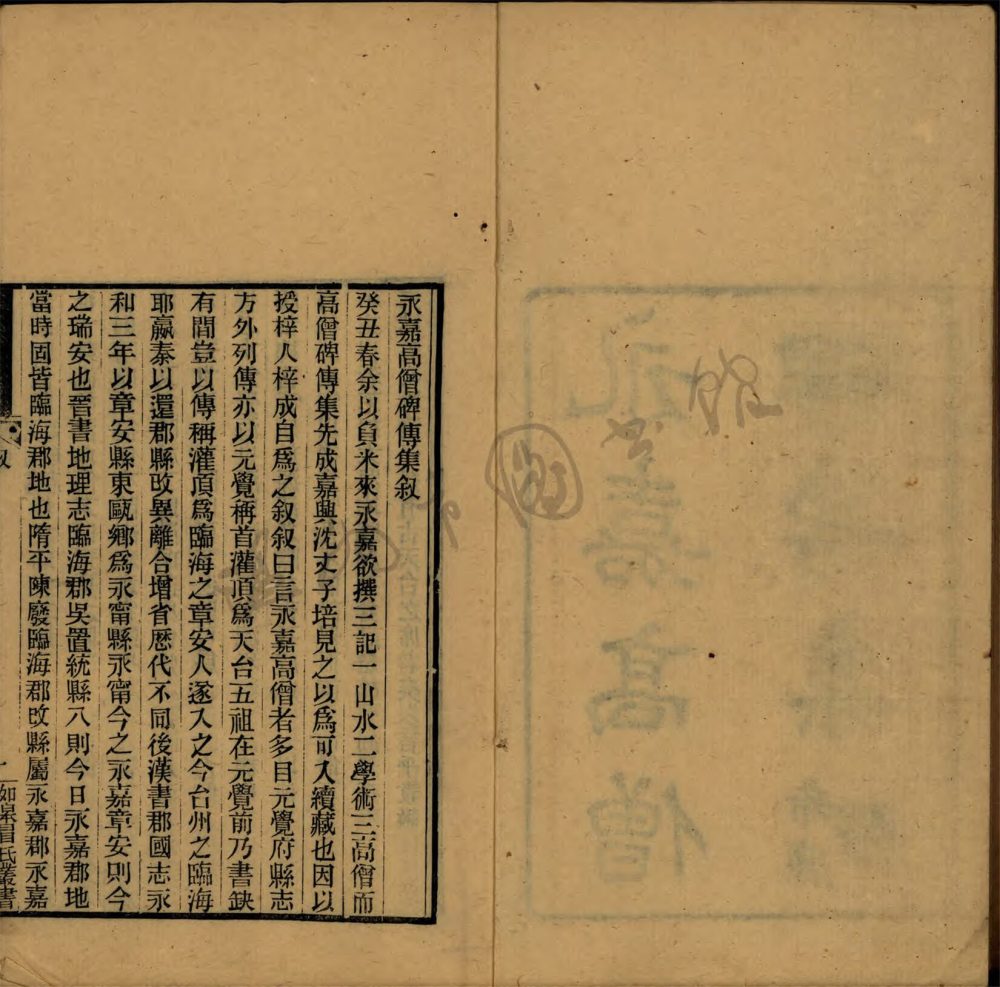 永嘉高僧碑傳集叙
癸丑春余以負米來永嘉欲撰三記一山水二學術三高僧而
高僧碑傳集先成嘉興沈丈子培見之以爲可入續藏也因以
授梓人梓成自爲之叙叙曰言永嘉高僧者多目元覺府縣志
方外列傳亦以元覺稱首灌頂爲天台五祖在元覺前乃書缺
有間豈以傳稱灌頂爲臨海之章安人遂入之今台州之臨海
耶嬴秦以還郡縣改異離合增省歷代不同後漢書郡國志永
和三年以章安縣東甌鄉爲永甯縣永甯今之永嘉章安則今
之瑞安也晉書地理志臨海郡吳置統縣八則今日永嘉郡地
當時固皆臨海郡地也隋平陳廢臨海郡改縣屬永嘉郡永嘉
叙
一
如臯冒氏叢書